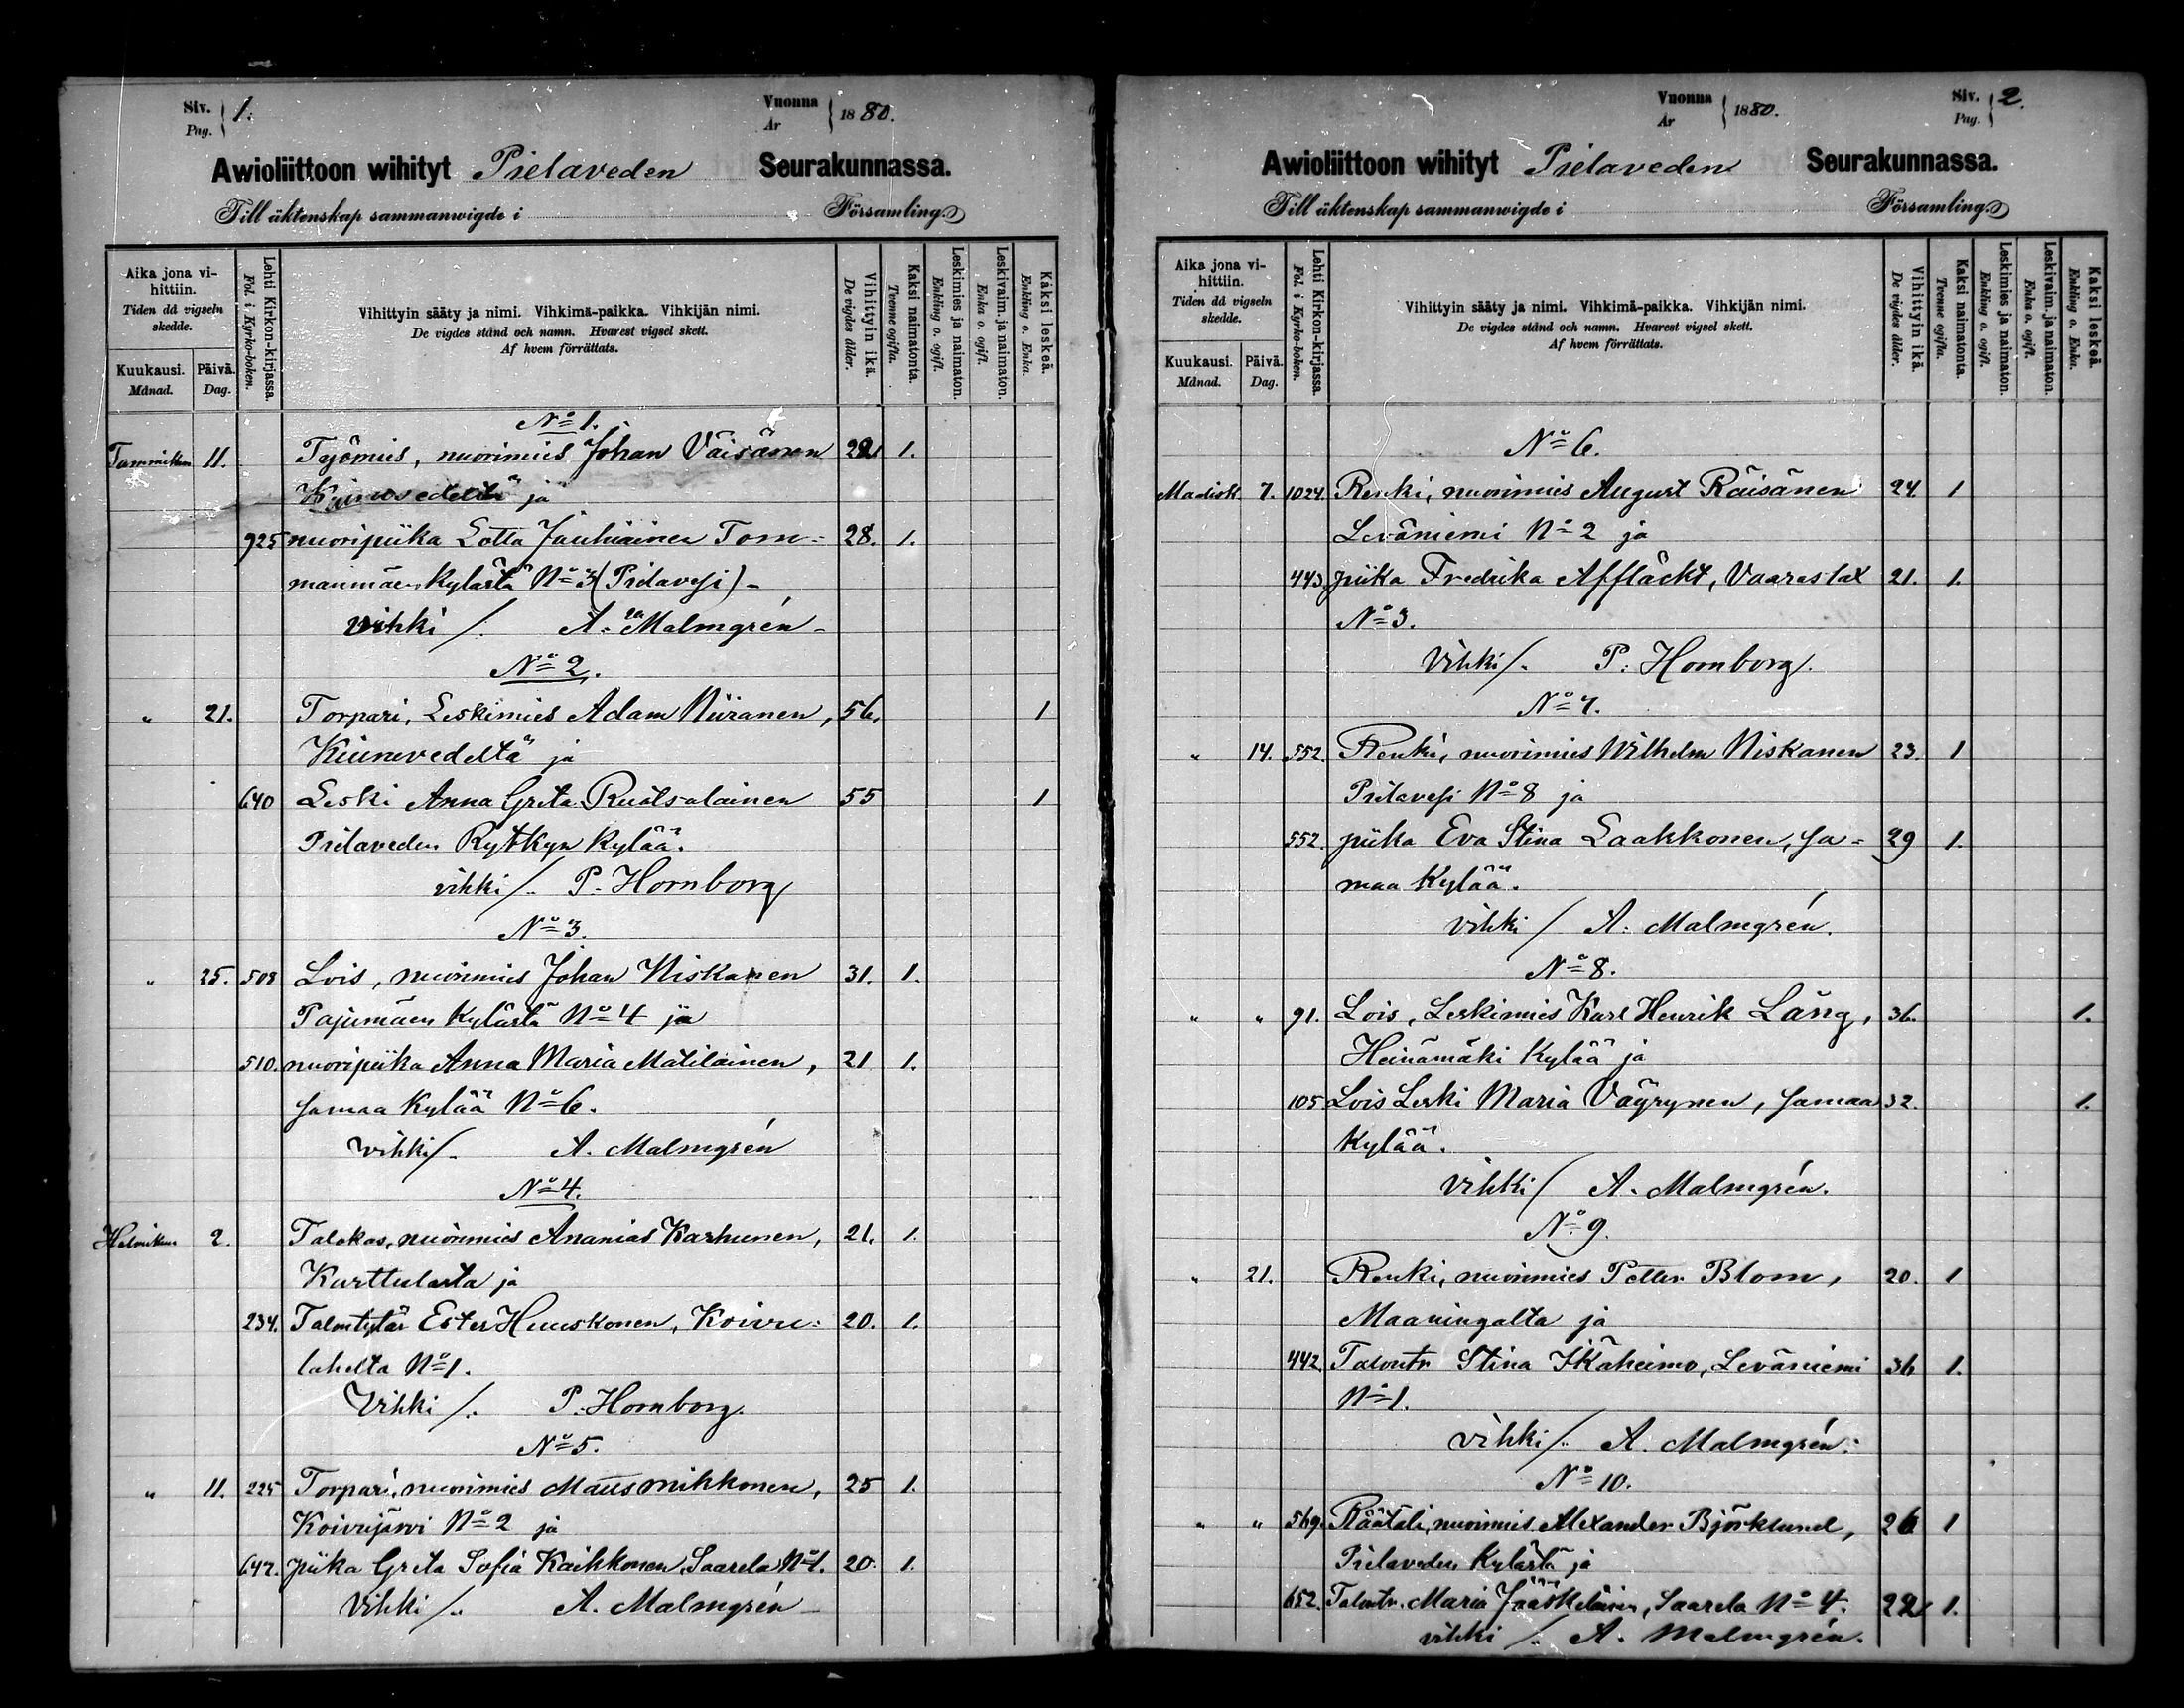 Siv. Pag. 1.
Vuonna År 1880.
Awioliittoon wihityt Pielaveden Seurakunnassa.
Till äktenskap sammanwigde i Församling.
Aika jona vihittiin. Tiden då vigseln skedde.
Kuukausi. Månad.
Päivä. Dag.
Lehti Kirkon-kirjassa. Fol. i Kyrko-boken.
Vihittyin sääty ja nimi. Vihkimä-paikka. Vihkijän nimi.
De vigdes stånd och namn. Hvarest vigsel skett.
Af hvem förrättats.
Vihittyin ikä. De vigdes ålder.
Kaksi naimatonta. Tvenne ogifta.
Leskimies ja naimaton. Enkling o. ogift.
Leskivaim. ja naimaton. Enka o. ogift.
Kaksi leskeä. Enkling o. Enka.
No 1.
Tammikuu 11. Työmies, nuorimies Johan Väisänen 1.
ja
925 nuoripiika Lotta Jauhiainen Tom- 28. 1.
manmäen kylästä No 3 (Pielavesi) -
vihki /. A. Malmgrén
No 2.
" 21. Torpari, Leskimies Adam Niiranen, 56. 1
Kiuruvedeltä ja
640 Leski Anna Greta Ruotsalainen 55 1
Pielaveden Rytkyn kylää.
vihki /. P. Hornborg
No 3.
" 25. 508 Lois, nuorimies Johan Niskanen 31. 1.
Pajumäen kylästä No 4 ja
510. nuoripiika Anna Maria Mätiläinen, 21 1.
samaa kylää No 6.
vihki /. A. Malmgrén
No 4.
Helmikuu 2. Talokas, nuorimies Ananias Karhunen, 21. 1.
Karttulasta ja
234. Talontytär Ester Huuskonen, Koivu- 20. 1.
lahelta No 1.
Vihki /. P. Hornborg.
No 5.
" 11. 225 Torpari, nuorimies Matts Mikkonen, 25 1.
Koivujärvi No 2 ja
647. piika Greta Sofia Kaikkonen, Saarela No 1. 20. 1.
Vihki /. A. Malmgrén
Vuonna År 1880.
Siv. Pag. 2.
Awioliittoon wihityt Pielaveden Seurakunnassa.
Till äktenskap sammanwigde i Församling.
Aika jona vihittiin. Tiden då vigseln skedde.
Kuukausi. Månad.
Päivä. Dag.
Lehti Kirkon-kirjassa. Fol. i Kyrko-boken.
Vihittyin sääty ja nimi. Vihkimä-paikka. Vihkijän nimi.
De vigdes stånd och namn. Hvarest vigsel skett.
Af hvem förrättats.
Vihittyin ikä. De vigdes ålder.
Kaksi naimatonta. Tvenne ogifta.
Leskimies ja naimaton. Enkling o. ogift.
Leskivaim. ja naimaton. Enka o. ogift.
Kaksi leskeä. Enkling o. Enka.
No 6.
Maalisk. 7. 1024. Renki, nuorimies August Räisänen 24. 1
Leväniemi No 2 ja
443. piika Fredrika Affläckt, Vaaraslax 21. 1.
No 3.
Vihki /. P. Hornborg.
No 7.
" 14. 552. Renki, nuorimies Wilhelm Niskanen 23. 1
Pielavesi No 8 ja
552. piika Eva Stina Laakkonen, sa- 29 1.
maa kylää.
vihki / A. Malmgrén.
No 8.
" " 91. Lois, Leskimies Karl Henrik Lång, 36. 1.
Heinämäki kylää ja
105 Lois Leski Maria Väyrynen, samaa 32. 1.
kylää.
Vihki / A. Malmgrén.
No 9.
" 21. Renki, nuorimies Petter Blom, 20. 1
Maaningalta ja
442. Talontr Stina Ikäheimo, Leväniemi 36 1.
No 1.
vihki /. A. Malmgrén.
No 10.
" " 569. Räätäli, nuorimies Alexander Björklund, 26 1
Pielaveden kylästä ja
652. Talontr. Maria Jääskeläinen, Saarela No 4. 22 1.
vihki /. A. Malmgrén.